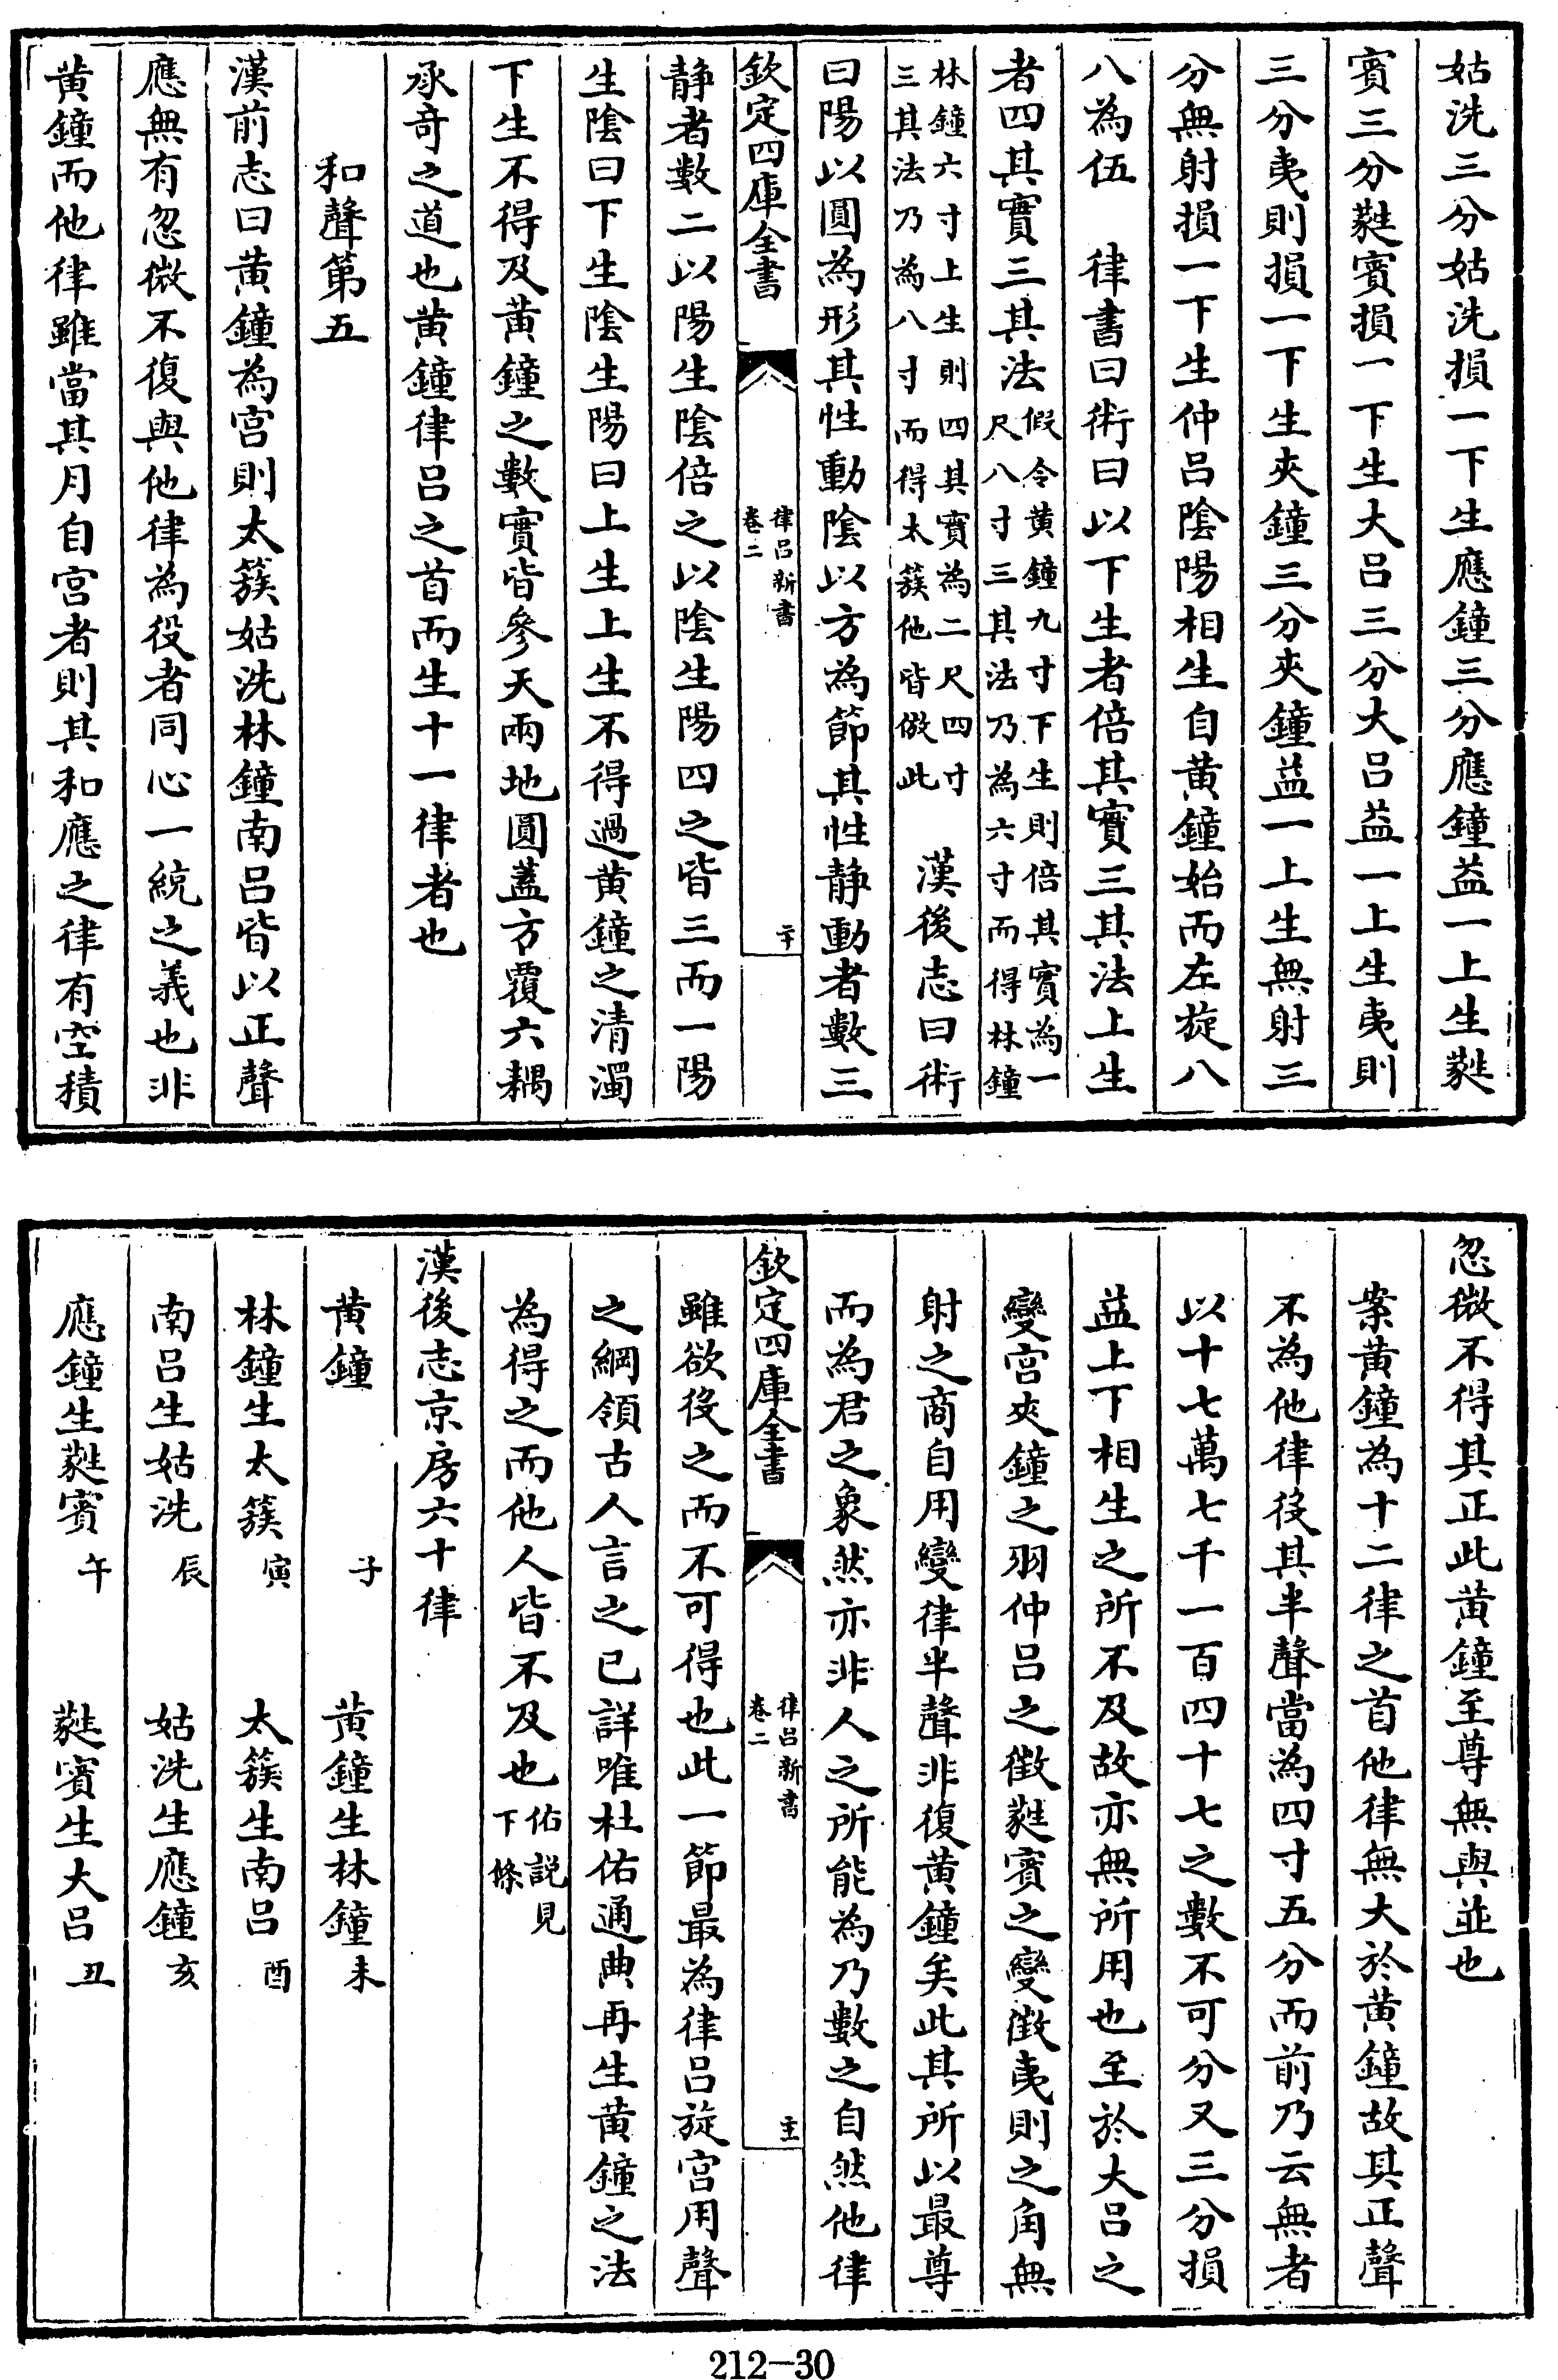 姑洗三分姑洗損一下生應鐘三分應鐘益一上生蕤
賓三分蕤賓損一下生大呂三分大呂益一上生夷則
三分夷則損一下生夾鐘三分夾鐘益一上生無射三
分無射損一下生仲呂陰陽相生自黃鐘始而左旋八
八為伍　律書曰術曰以下生者倍其實三其法上生
者四其實三其法假令黃鐘九寸下生則倍其實為一
尺八寸三其法乃為六寸而得林鐘
林鐘六寸上生則四其實為二尺四寸
三其法乃為八寸而得太簇他皆倣此　漢後志曰術
曰陽以圓為形其性動陰以方為節其性静動者數三
欽定四庫全書
律呂新書
卷二
二十
静者數二以陽生陰倍之以陰生陽四之皆三而一陽
生陰曰下生陰生陽曰上生上生不得過黃鐘之清濁
下生不得及黃鐘之數實皆參天兩地圓蓋方覆六耦
承奇之道也黃鐘律呂之首而生十一律者也
和聲第五
漢前志曰黃鐘為宮則太簇姑洗林鐘南呂皆以正聲
應無有忽微不復與他律為役者同心一統之義也非
黃鐘而他律雖當其月自宮者則其和應之律有空積
忽微不得其正此黃鐘至尊無與並也
案黃鐘為十二律之首他律無大於黃鐘故其正聲
不為他律役其半聲當為四寸五分而前乃云無者
以十七萬七千一百四十七之數不可分又三分損
益上下相生之所不及故亦無所用也至於大呂之
變宮夾鐘之羽仲呂之徵蕤賓之變徵夷則之角無
射之商自用變律半聲非復黃鐘矣此其所以最尊
而為君之象然亦非人之所能為乃數之自然他律
欽定四庫全書
律呂新書
卷二
主
雖欲役之而不可得也此一節最為律呂旋宮用聲
之綱領古人言之已詳唯杜佑通典再生黃鐘之法
為得之而他人皆不及也佑說見
下條
漢後志京房六十律
黃鐘　子　黃鐘生林鐘　未
林鐘生太簇　寅　太簇生南呂　酉
南呂生姑洗　辰　姑洗生應鐘　亥
應鐘生蕤賓　午　蕤賓生大呂　丑
212-30